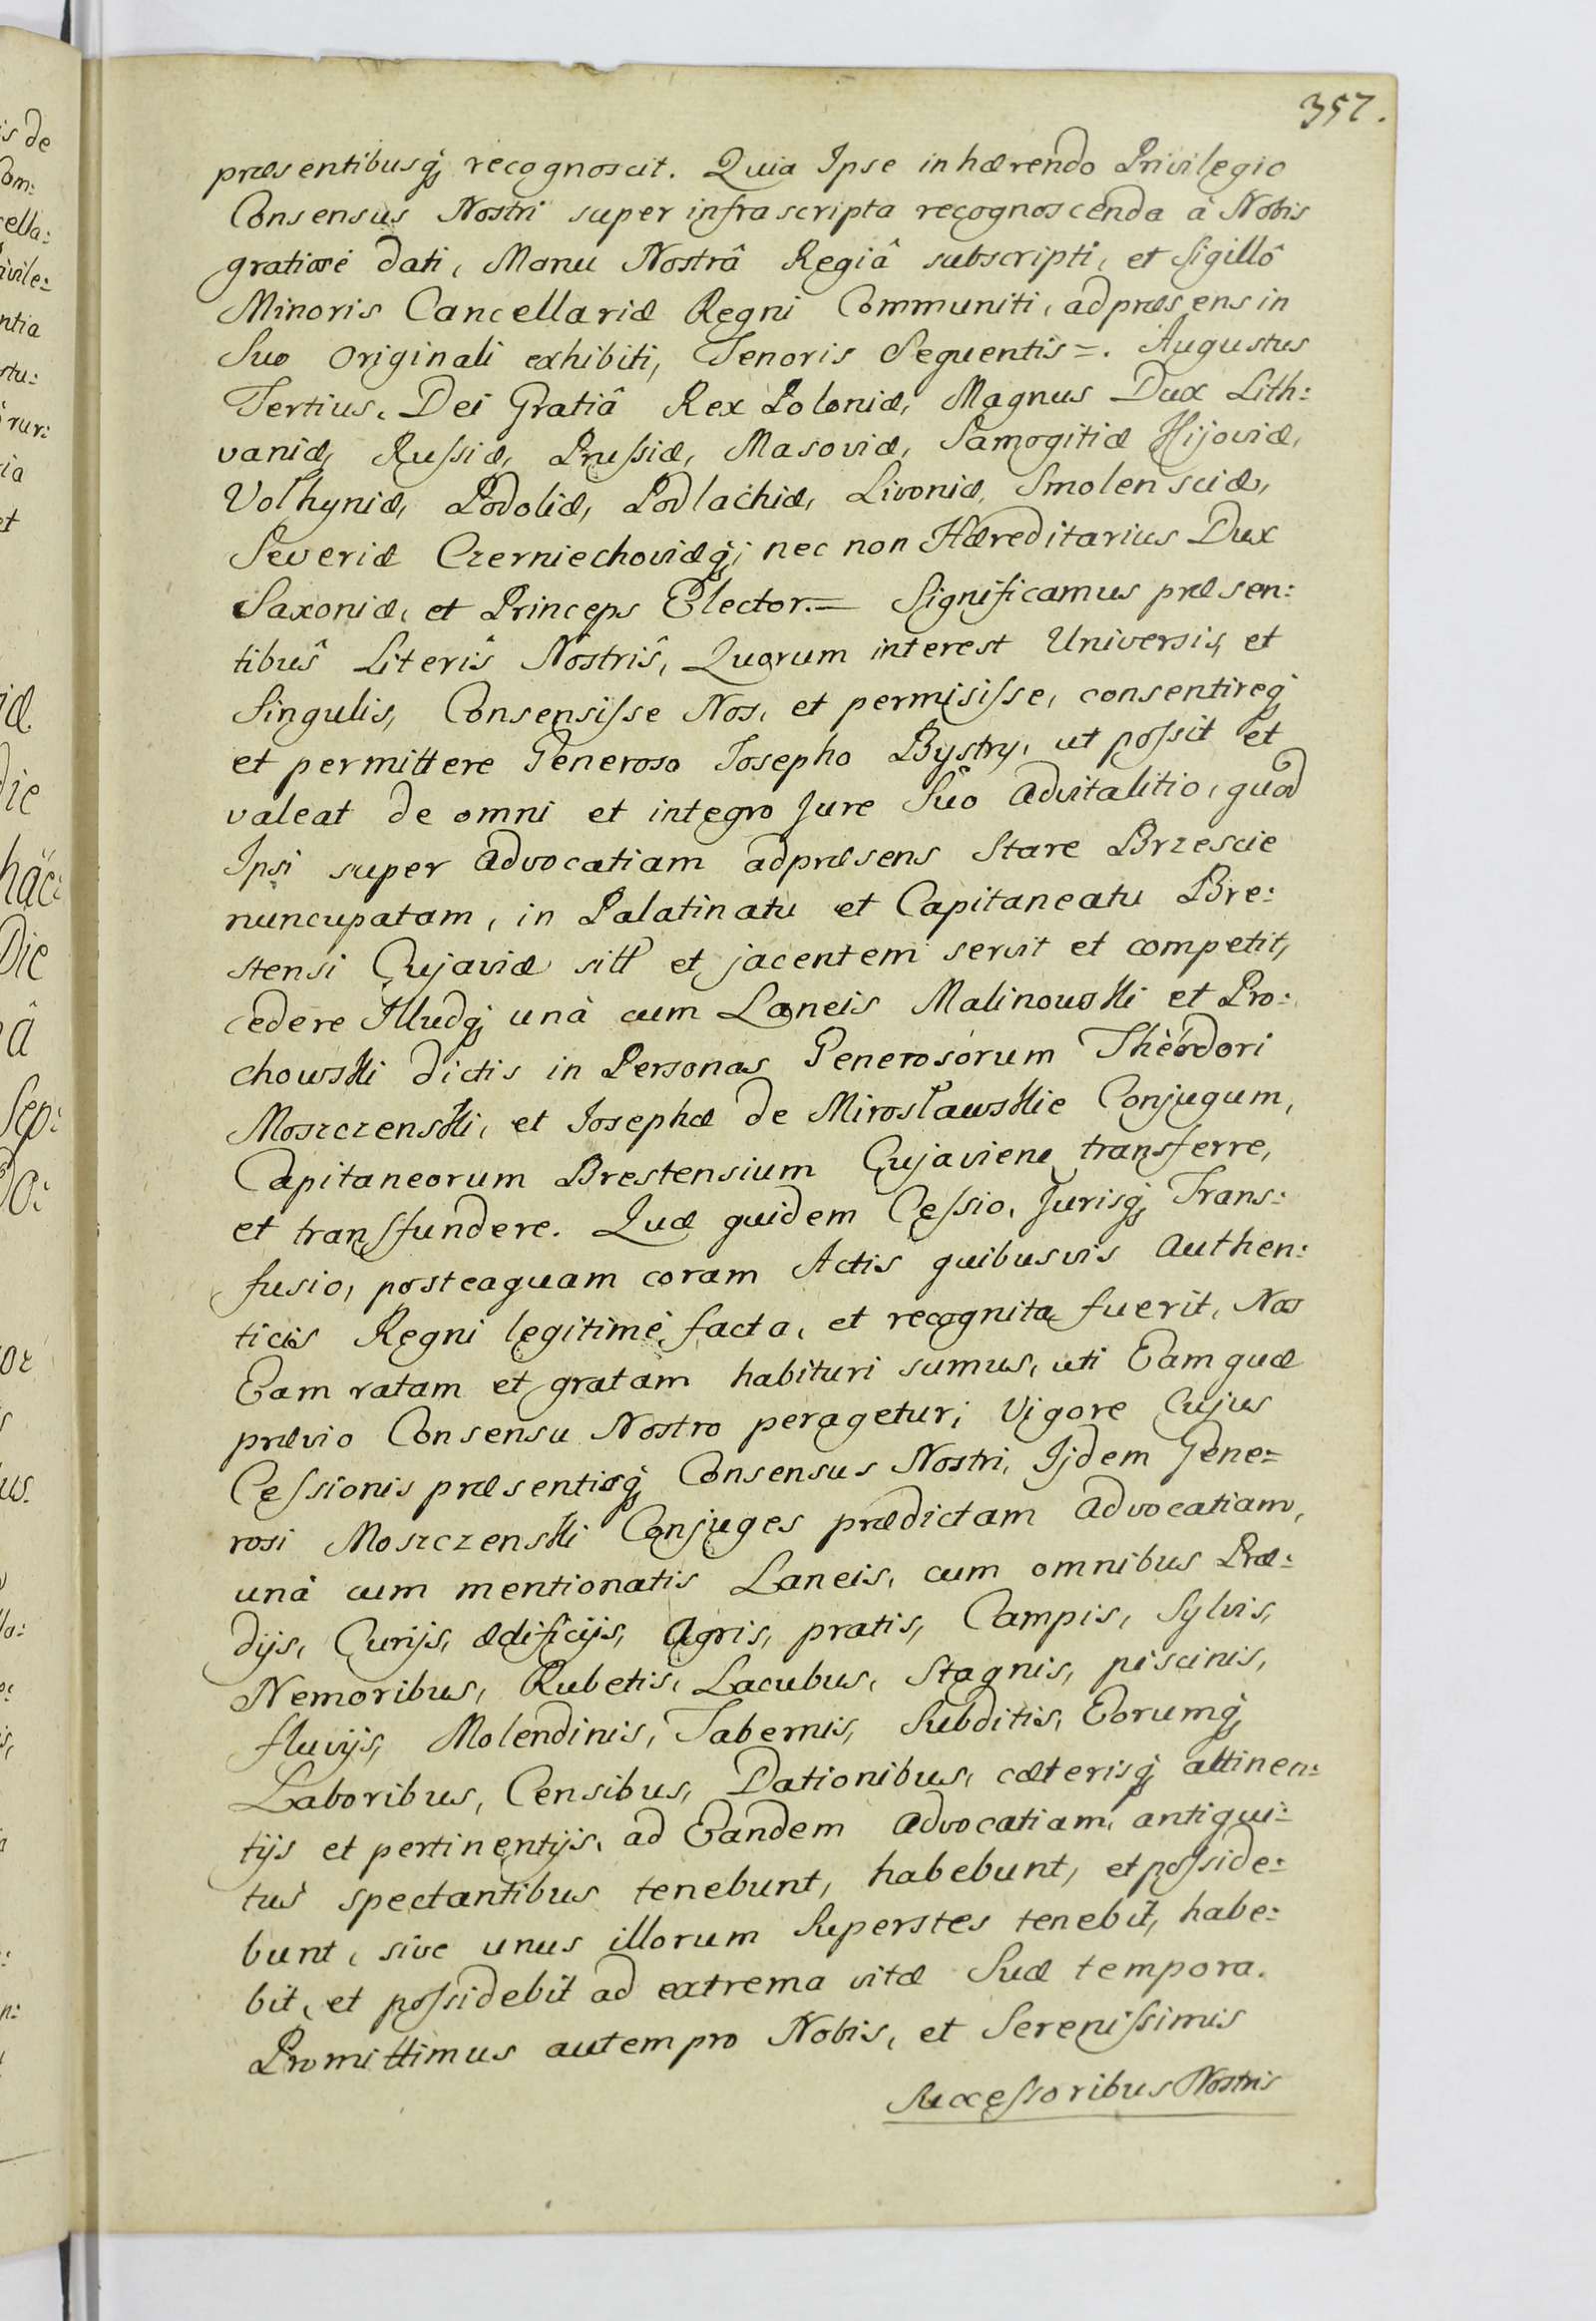 357.
præsentibusq́ recognoscit. Quia Ipse inhærendo Privilegio
Consensus Nostri super infrascripta recognoscenda à Nobis
gratiosè dati, Manu Nostrâ Regiâ subscripti, et Sigillô
Minoris Cancellariæ Regni Communiti, adpræsens in
Suo Originali exhibiti, Tenoris Sequentis =. Augustus
Tertius, Dei Gratiâ Rex Poloniæ, Magnus Dux Lith:
vaniæ, Ruſsiæ, Pruſsiæ, Masoviæ, Samogitiæ Kijoviæ,
Volhyniæ, Podoliæ, Podlachiæ, Livoniæ, Smolensciæ,
Severiæ Czerniechoviæq́; nec non Hæreditarius Dux
Saxoniæ, et Princeps Elector.= Significamus præsen:
tibuŝ Literiŝ Nostriŝ, Quorum interest Universis, et
Singulis, Consensiſse Nos, et permisiſse, consentireq́
et permittere Generoso Josepho Bystry, ut poſsit et
valeat de omni et integro Jure Suo Advitalitio, quod
Ipsi super Advocatiam adpræsens Stare Brzescie
nuncupatam, in Palatinatu et Capitaneatu Bre:
stensi Cujaviæ sitt et jacentem servit et competit,
cedere Illudq́ unà cum Laneis Malinowski et Pro:
chowski dictis in Personas Generosorum Theodori
Moszczenski, et Josephæ de Mirosławskie Conjugum,
Capitaneorum Brestensium Cujaviene transferre,
et transfundere. Quæ quidem Ceſsio, Jurisq́ Trans:
fusio, posteaquam coram Actis quibusvis Authen:
ticis Regni legitimè facta, et recognita fuerit, Nos
Eam ratam et gratam habituri sumus, uti Eam quæ
prævio Consensu Nostro perageturi Vigore Cujus
Ceſsionis præsentisq́ Consensus Nostri, Ijdem Gene=
rosi Moszczenski Conjuges prædictam Advocatiam,
unà cum mentionatis Laneis, cum omnibus Præ:
dijs, Curijs, ædificijs, Agris, pratis, Campis, Sylvis,
Nemoribus, Rubetis, Lacubus, Stagnis, piscinis,
fluvijs, Molendinis, Tabernis, Subditis, Eorumq́
Laboribus, Censibus, Dationibus, cæterisq́ attinen:
tijs et pertinentijs, ad Eandem Advocatiam, antiqui:
tus spectantibus tenebunt, habebunt, et poſside:
bunt, sive unus illorum Superstes tenebit, habe:
bit, et poſsidebit ad extrema vitæ Suæ tempora.
Promittimus autem pro Nobis, et Sereniſsimis
Succeſsoribus Nostris